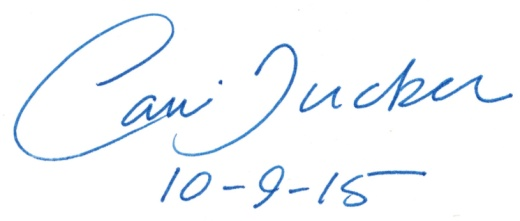 Cari Tucker
10-9-15